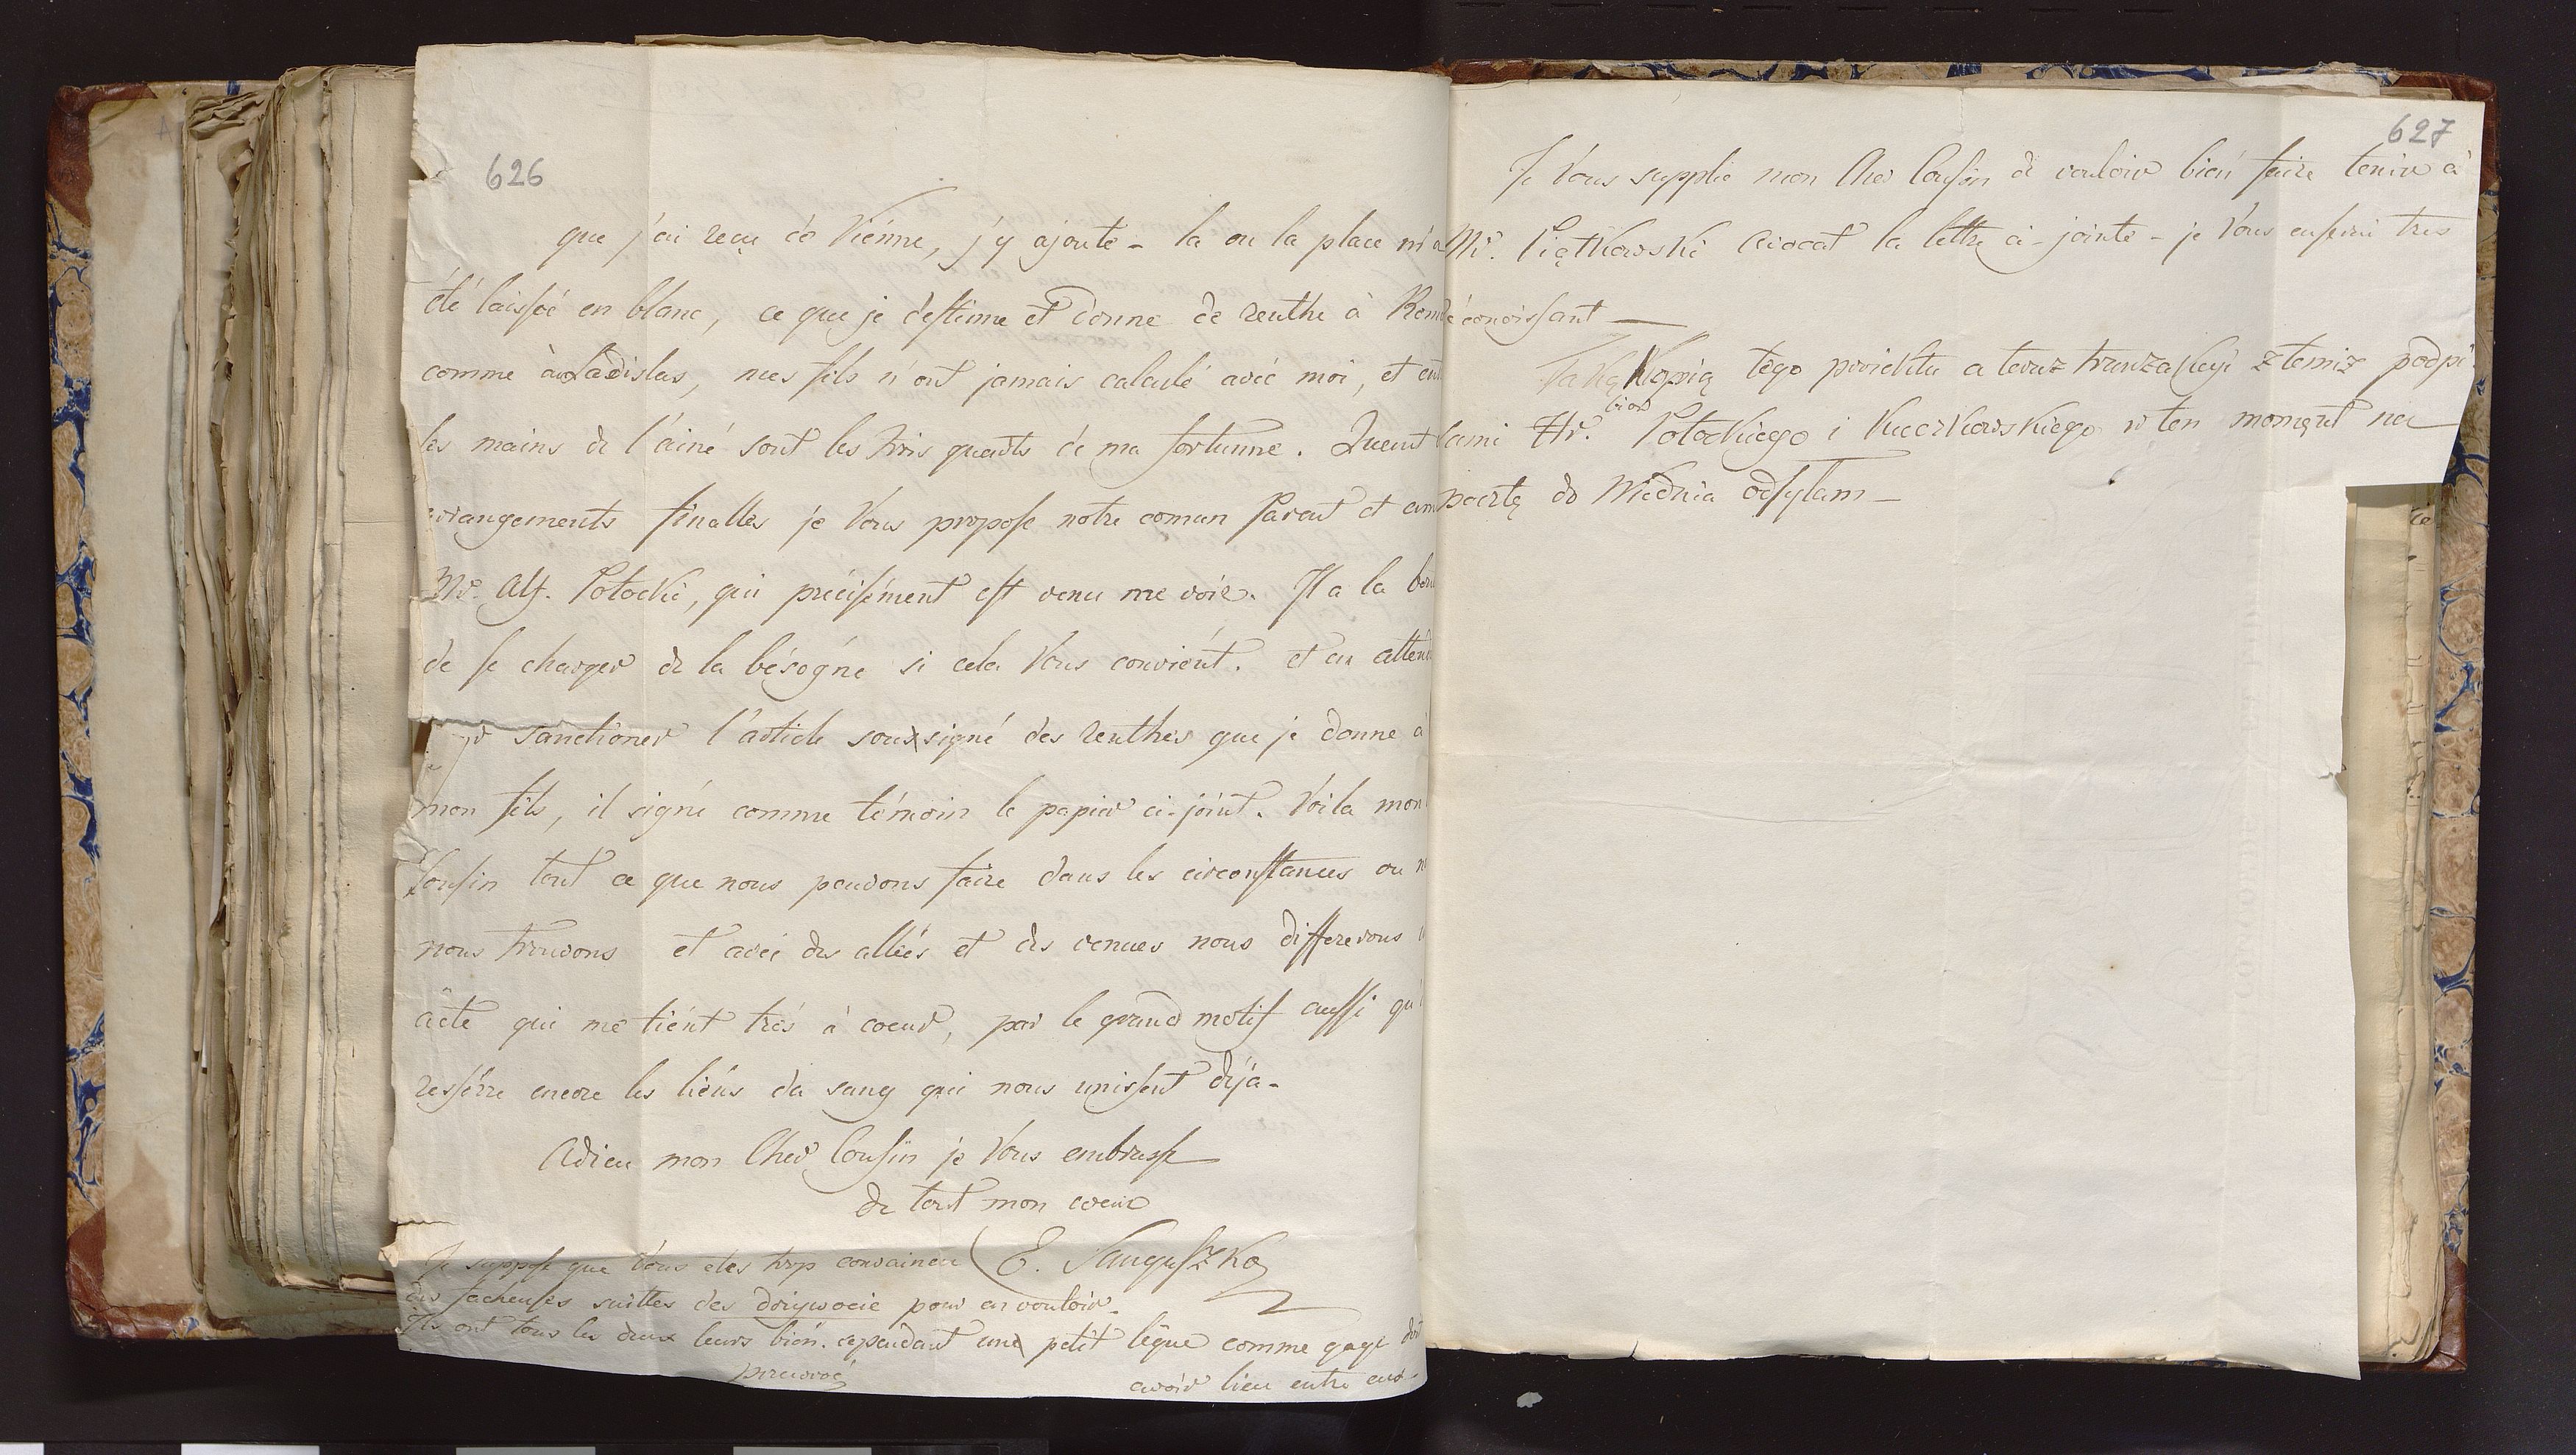 626
que j'ai reçu de Viénne, j'y ajoute - la ou la place m'a
été laissée en blanc, ce que je destinne et donne de renthe à
comme à Ladislas, mes fils n'ont jamais calculé avéc moi, et
les mains de l'ainé sont les trois quarts de ma fortunne. Quent
arrangements finalles je Vous propose notre comun Parent et
Mr. Alf. Potocki, qui précisément est venu me voir. Il a la
de se charger de la bésogne si cela Vous convient. et en
sanctioner l'article soussigné des renthes que je donne à
mon fils, il signe comme témoin le papier ci-joint. Voila mon
Cousin tout ce que nous pouvons faire dans les circonstances ou
nous trouvons et avéc des allées et des venues nous differerons
acte qui me tiént trés à coeur, par le grand motif aussi
resserre encore les liens du sang qui nous unissent déja-
Adieu mon Cher Cousin je Vous embrasse
de tout mon coeur
E. Sanguszko
Je suppose que Vous etes trop convaincu
des facheuses suittes des dożywocie pour en vouloir-
Ils ont tous les deux leurs bién. cependant une petit légue comme gage
avoir lieu entre eux.
627
Je Vous supplie mon Cher Cousin de vouloir bién faire tenir à
Mr. Piątkowski avocat la lettre ci-jointe - je Vous en serai tres
réconoissant —
Taką Kopią tego proiektu a teraz tranzakcyi z temiż podpi-
sami Hr. Potockiego i Kuczkowskiego w ten moment na
pocztę do Wiednia odsyłam —